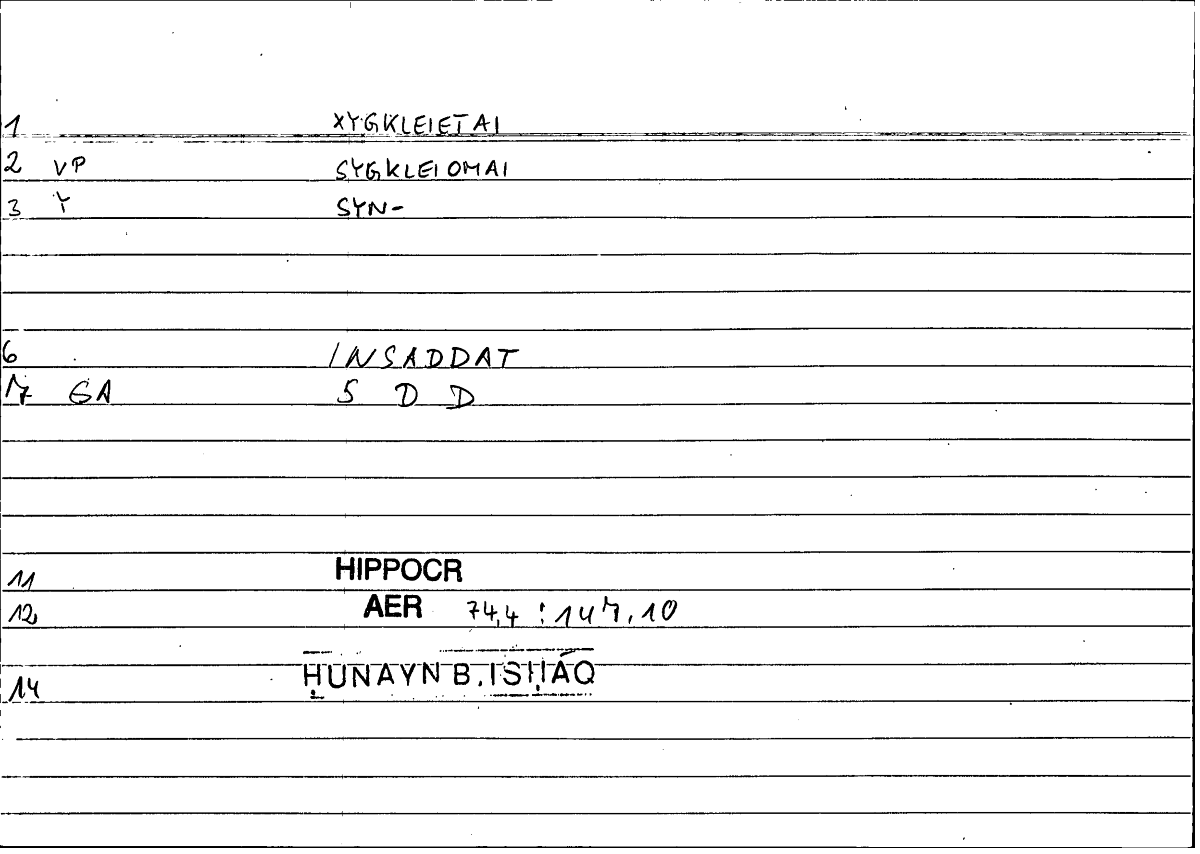 1 XYGKLEIETAI
2 VP SYGKLEIOMAI
3 Y SYN-
6 INSADDAT
7 GA S D D
11 HIPPOCR
12 AER 74,4 : 147,10
14 ḤUNAYN B. ISḤĀQ